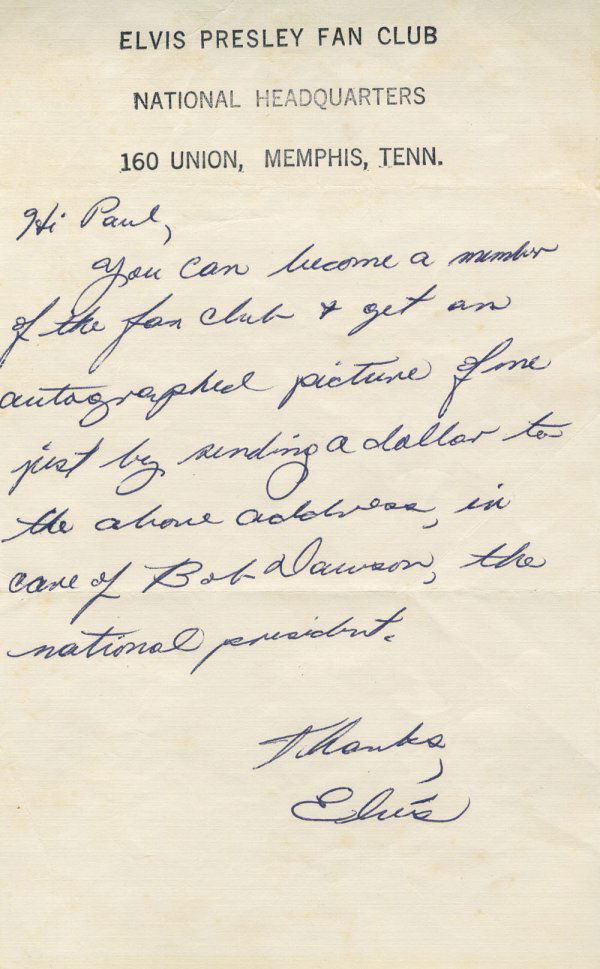 ELVIS PRESLEY FAN CLUB
NATIONAL HEADQUARTERS
160 UNION, MEMPHIS, TENN.
Hi Paul,
You can become a member
of the fan club & get an
autographed picture of me
just by sending a dollar to
the above address, in
care of Bob Dawson, the
national president.
Thanks,
Elvis